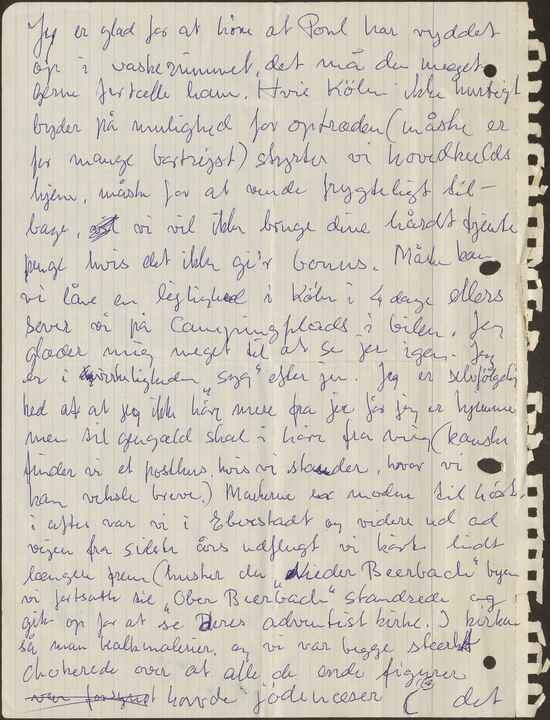 Jeg er glad for at höre at Poul har ryddet
op i vaskerummet, det må du meget
gerne fortælle ham. Hvis Köln ikke hurtigt
byder på mulighed for optræden (måske er
for mange bortrejst) styrter vi hovedkulds
hjem, måske for at vende frygteligt til-
bage, vi vil ikke bruge dine hårdt tjente
penge hvis det ikke gi'r bonus. Måske kan
vi låne en lejlighed i Köln i 4 dage ellers
sover vi på Campingplads i bilen. Jeg
glæder mig meget til at se jer igen. Jeg
er i virkeligheden "syg" efter jer. Jeg er selvfölgelig
ked af at jeg ikke hörer mere fra jer för jeg er hjemme
men til gengæld skal i höre fra mig (kanske
finder vi et posthus, hvis vi standser, hvor vi
kan veksle breve.) Markerne er modne til höst.
i aftes var vi i Eberstadt og videre ud ad
vejen fra sidste års udflugt vi körte lidt
længere frem (husker du "Nieder Beerbach" byen
vi fortsatte til "Ober Beerbach" standsede og
gik op for at se Deres adventist kirke. I kirken
så man kalkmalerier, og vi var begge stærkt
chokerede over at alle de onde figurer
havde jödenæser ( det